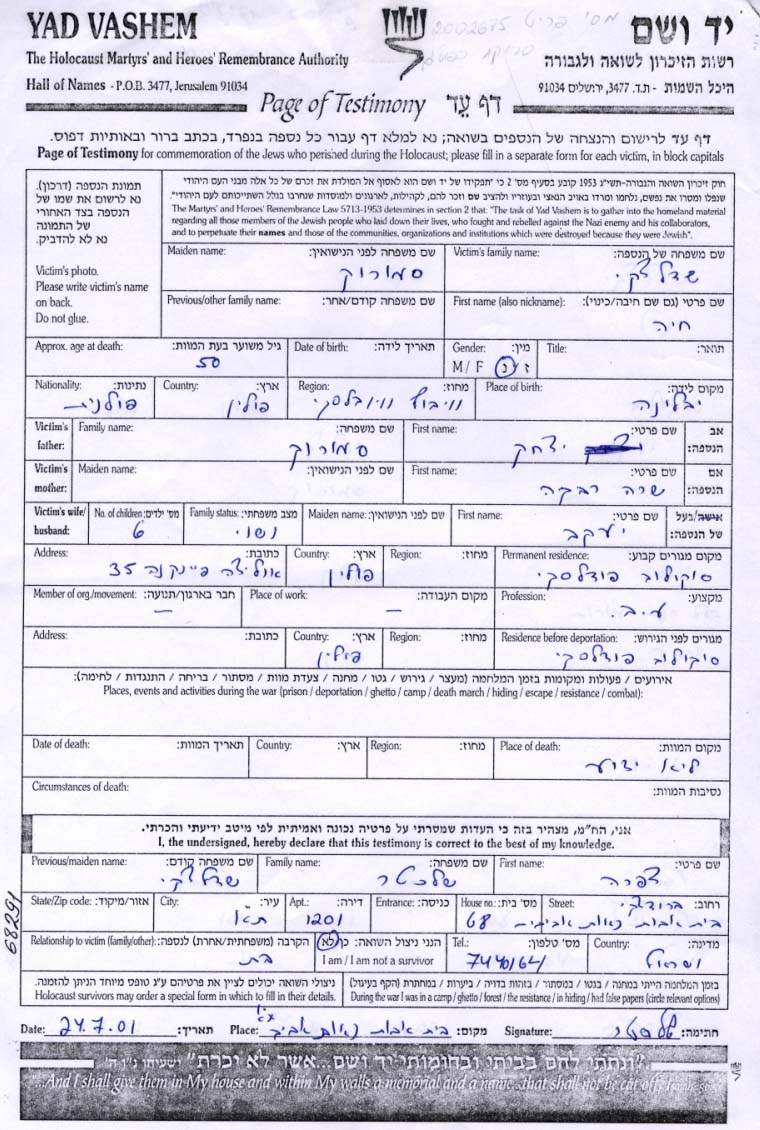 YAD VASHEM
יד ושם
מס' פריט 2002675
The Holocaust Martyrs' and Heroes' Remembrance Authority
רשות הזיכרון לשואה ולגבורה
Hall of Names - P.O.B. 3477, Jerusalem 91034
היכל השמות - ת.ד. 3477, ירושלים 91034
Page of Testimony דף עֵד
דף עד לרישום והנצחה של הנספים בשואה; נא למלא דף עבור כל נספה בנפרד, בכתב ברור ובאותיות דפוס.
Page of Testimony for commemoration of the Jews who perished during the Holocaust; please fill in a separate form for each victim, in block capitals
תמונת הנספה (דרכון).
נא לרשום את שמו של
הנספה בצד האחורי
של התמונה
נא לא להדביק.
Victim's photo.
Please write victim's name
on back.
Do not glue.
חוק זיכרון השואה והגבורה-תשי"ג 1953 קובע בסעיף מס' 2 כי "תפקידו של יד ושם הוא לאסוף אל המולדת את זכרם של כל אלה מבני העם היהודי
שנפלו ומסרו את נפשם, נלחמו ומרדו באויב הנאצי ובעוזריו ולהציב שם וזכר להם, לקהילות, לארגונים ולמוסדות שנחרבו בגלל השתייכותם לעם היהודי".
The Martyrs' and Heroes' Remembrance Law 5713-1953 determines in section 2 that: "The task of Yad Vashem is to gather into the homeland material
regarding all those members of the Jewish people who laid down their lives, who fought and rebelled against the Nazi enemy and his collaborators,
and to perpetuate their names and those of the communities, organizations and institutions which were destroyed because they were Jewish".
Maiden name: שם משפחה לפני הנישואין: Victim's family name: שם משפחה של הנספה:
סמורוק
Previous/other family name: שם משפחה קודם/אחר: First name (also nickname): שם פרטי (גם שם חיבה/כינוי):
חיה
Approx. age at death: גיל משוער בעת המוות: Date of birth: תאריך לידה: Gender: מין: Title: תואר:
50 M / F ז נ
Nationality: נתינות: Country: ארץ: Region: מחוז: Place of birth: מקום לידה:
פולנית פולין
Victim's father: Family name: שם משפחה: First name: שם פרטי: אב הנספה:
סמורוק יצחק
Victim's mother: Maiden name: שם לפני הנישואין: First name: שם פרטי: אם הנספה:
שרה רבקה
Victim's wife/ husband: No. of children: מס' ילדים: Family status: מצב משפחתי: Maiden name: שם לפני הנישואין: First name: שם פרטי: אישה/בעל של הנספה:
6 נשוי יעקב
Address: כתובת: Country: ארץ: Region: מחוז: Permanent residence: מקום מגורים קבוע:
35 פולין סוקולוב פודלסקי
Member of org./movement: חבר בארגון/תנועה: Place of work: מקום העבודה: Profession: מקצוע:
— — ע.ב.
Address: כתובת: Country: ארץ: Region: מחוז: Residence before deportation: מגורים לפני הגירוש:
פולין סוקולוב פודלסקי
אירועים / פעולות ומקומות בזמן המלחמה (מעצר / גירוש / גטו / מחנה / צעדת מוות / מסתור / בריחה / התנגדות / לחימה):
Places, events and activities during the war (prison / deportation / ghetto / camp / death march / hiding / escape / resistance / combat):
Date of death: תאריך המוות: Country: ארץ: Region: מחוז: Place of death: מקום המוות:
לא ידוע
Circumstances of death: נסיבות המוות:
אני, הח"מ, מצהיר בזה כי העדות שמסרתי על פרטיה נכונה ואמיתית לפי מיטב ידיעתי והכרתי.
I, the undersigned, hereby declare that this testimony is correct to the best of my knowledge.
Previous/maiden name: שם משפחה קודם: Family name: שם משפחה: First name: שם פרטי:
שלכטר צפרה
State/Zip code: אזור/מיקוד: City: עיר: Apt.: דירה: Entrance: כניסה: House no.: מס' בית: Street: רחוב:
68291 ת"א 1201 68 ברודצקי
בית אבות נאות אביבים
Relationship to victim (family/other): הקרבה (משפחתית/אחרת) לנספה: הנני ניצול השואה: כן/לא Tel.: מס' טלפון: Country: מדינה:
I am / I am not a survivor
בת 7440164 ישראל
ניצולי השואה יכולים לציין את פרטיהם ע"ג טופס מיוחד הניתן להזמנה.
Holocaust survivors may order a special form in which to fill in their details.
בזמן המלחמה הייתי במחנה / בגטו / במסתור / בזהות בדויה / ביערות / במחתרת (הקף בעיגול)
During the war I was in a camp / ghetto / forest / the resistance / in hiding / had false papers (circle relevant options)
Date: 24.7.01 תאריך: Place: בית אבות נאות אביב מקום: Signature: שלכטר חתימה:
"ונתתי להם בביתי ובחומותי יד ושם...אשר לא יכרת" ישעיהו נ"ו ה'
"...And I shall give them in My house and within My walls a memorial and a name...that shall not be cut off." Isaiah 56:5